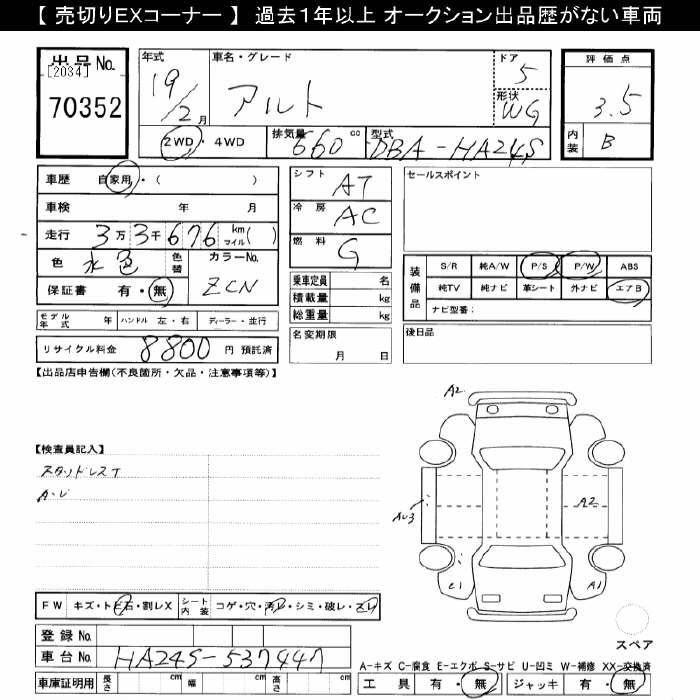 【 売切りEXコーナー 】 過去1年以上 オークション出品歴がない車両
出品No.
[2034]
70352
年式 19/2月
車名・グレード アルト
ドア 5
形状 WG
2WD・4WD
排気量 660 cc
型式 DBA-HA24S
評価点 3.5
内装 B
車歴 自家用・( )
車検 年 月
走行 3万3千676 km マイル( )
色 水色 色替
カラーNo. ZCN
保証書 有・無
シフト AT
冷房 AC
燃料 G
乗車定員 名
積載量 kg
総重量 kg
セールスポイント
装備品 S/R 純A/W P/S P/W ABS
純TV 純ナビ 革シート 外ナビ エアB
ナビ型番:
モデル年式 年 ハンドル 左・右 ディーラー・並行
リサイクル料金 8800 円 預託済
名変期限 月 日
後日品
【出品店申告欄(不良箇所・欠品・注意事項等)】
【検査員記入】
スタッドレスT
A・U
A2
AU3
A2
E1
A1
スペア
FW キズ・トビ石・割レX シート内装 コゲ・穴・汚レ・シミ・破レ・スレ
登録No.
車台No. HA24S-537447
車庫証明用 長さ cm 幅 cm 高さ cm
A-キズ C-腐食 E-エクボ S-サビ U-凹ミ W-補修 XX-交換済
工具 有・無 ジャッキ 有・無